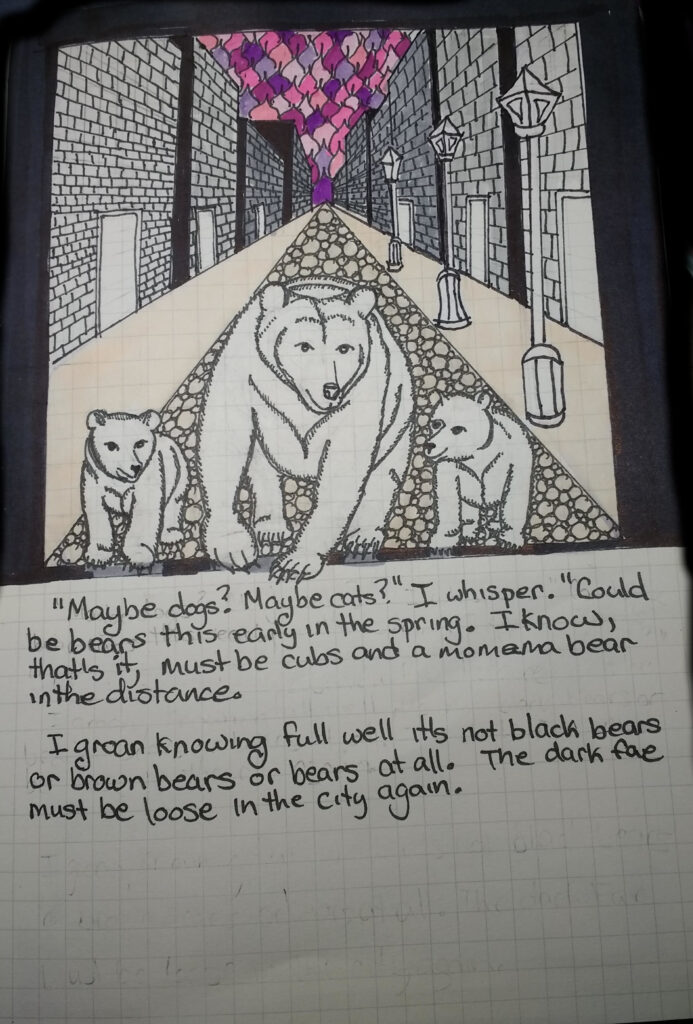 "Maybe dogs? Maybe cats?" I whisper. "Could
be bears this early in the spring. I know,
that's it, must be cubs and a momama bear
in the distance.
I groan knowing full well it's not black bears
or brown bears or bears at all. The dark fae
must be loose in the city again.